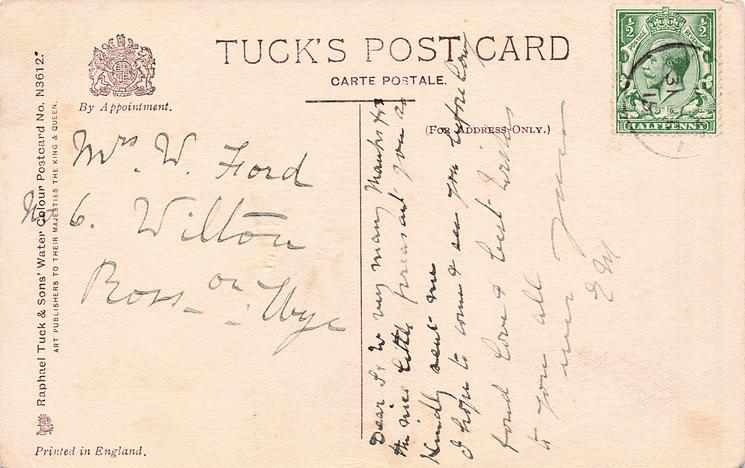 TUCK'S POST CARD
CARTE POSTALE.
By Appointment.
(FOR ADDRESS ONLY.)
½ ½
POSTAGE REVENUE
HALFPENNY
31
Mrs W. Ford
No 6. Wilton
Ross-on-Wye
Dear S & W very many thanks for
the nice little present you so
kindly sent me
I hope to come & see you before long
fond love & best wishes
to you all
yours
E M
Raphael Tuck & Sons' Water Colour Postcard No. N3612.
ART PUBLISHERS TO THEIR MAJESTIES THE KING & QUEEN.
Printed in England.